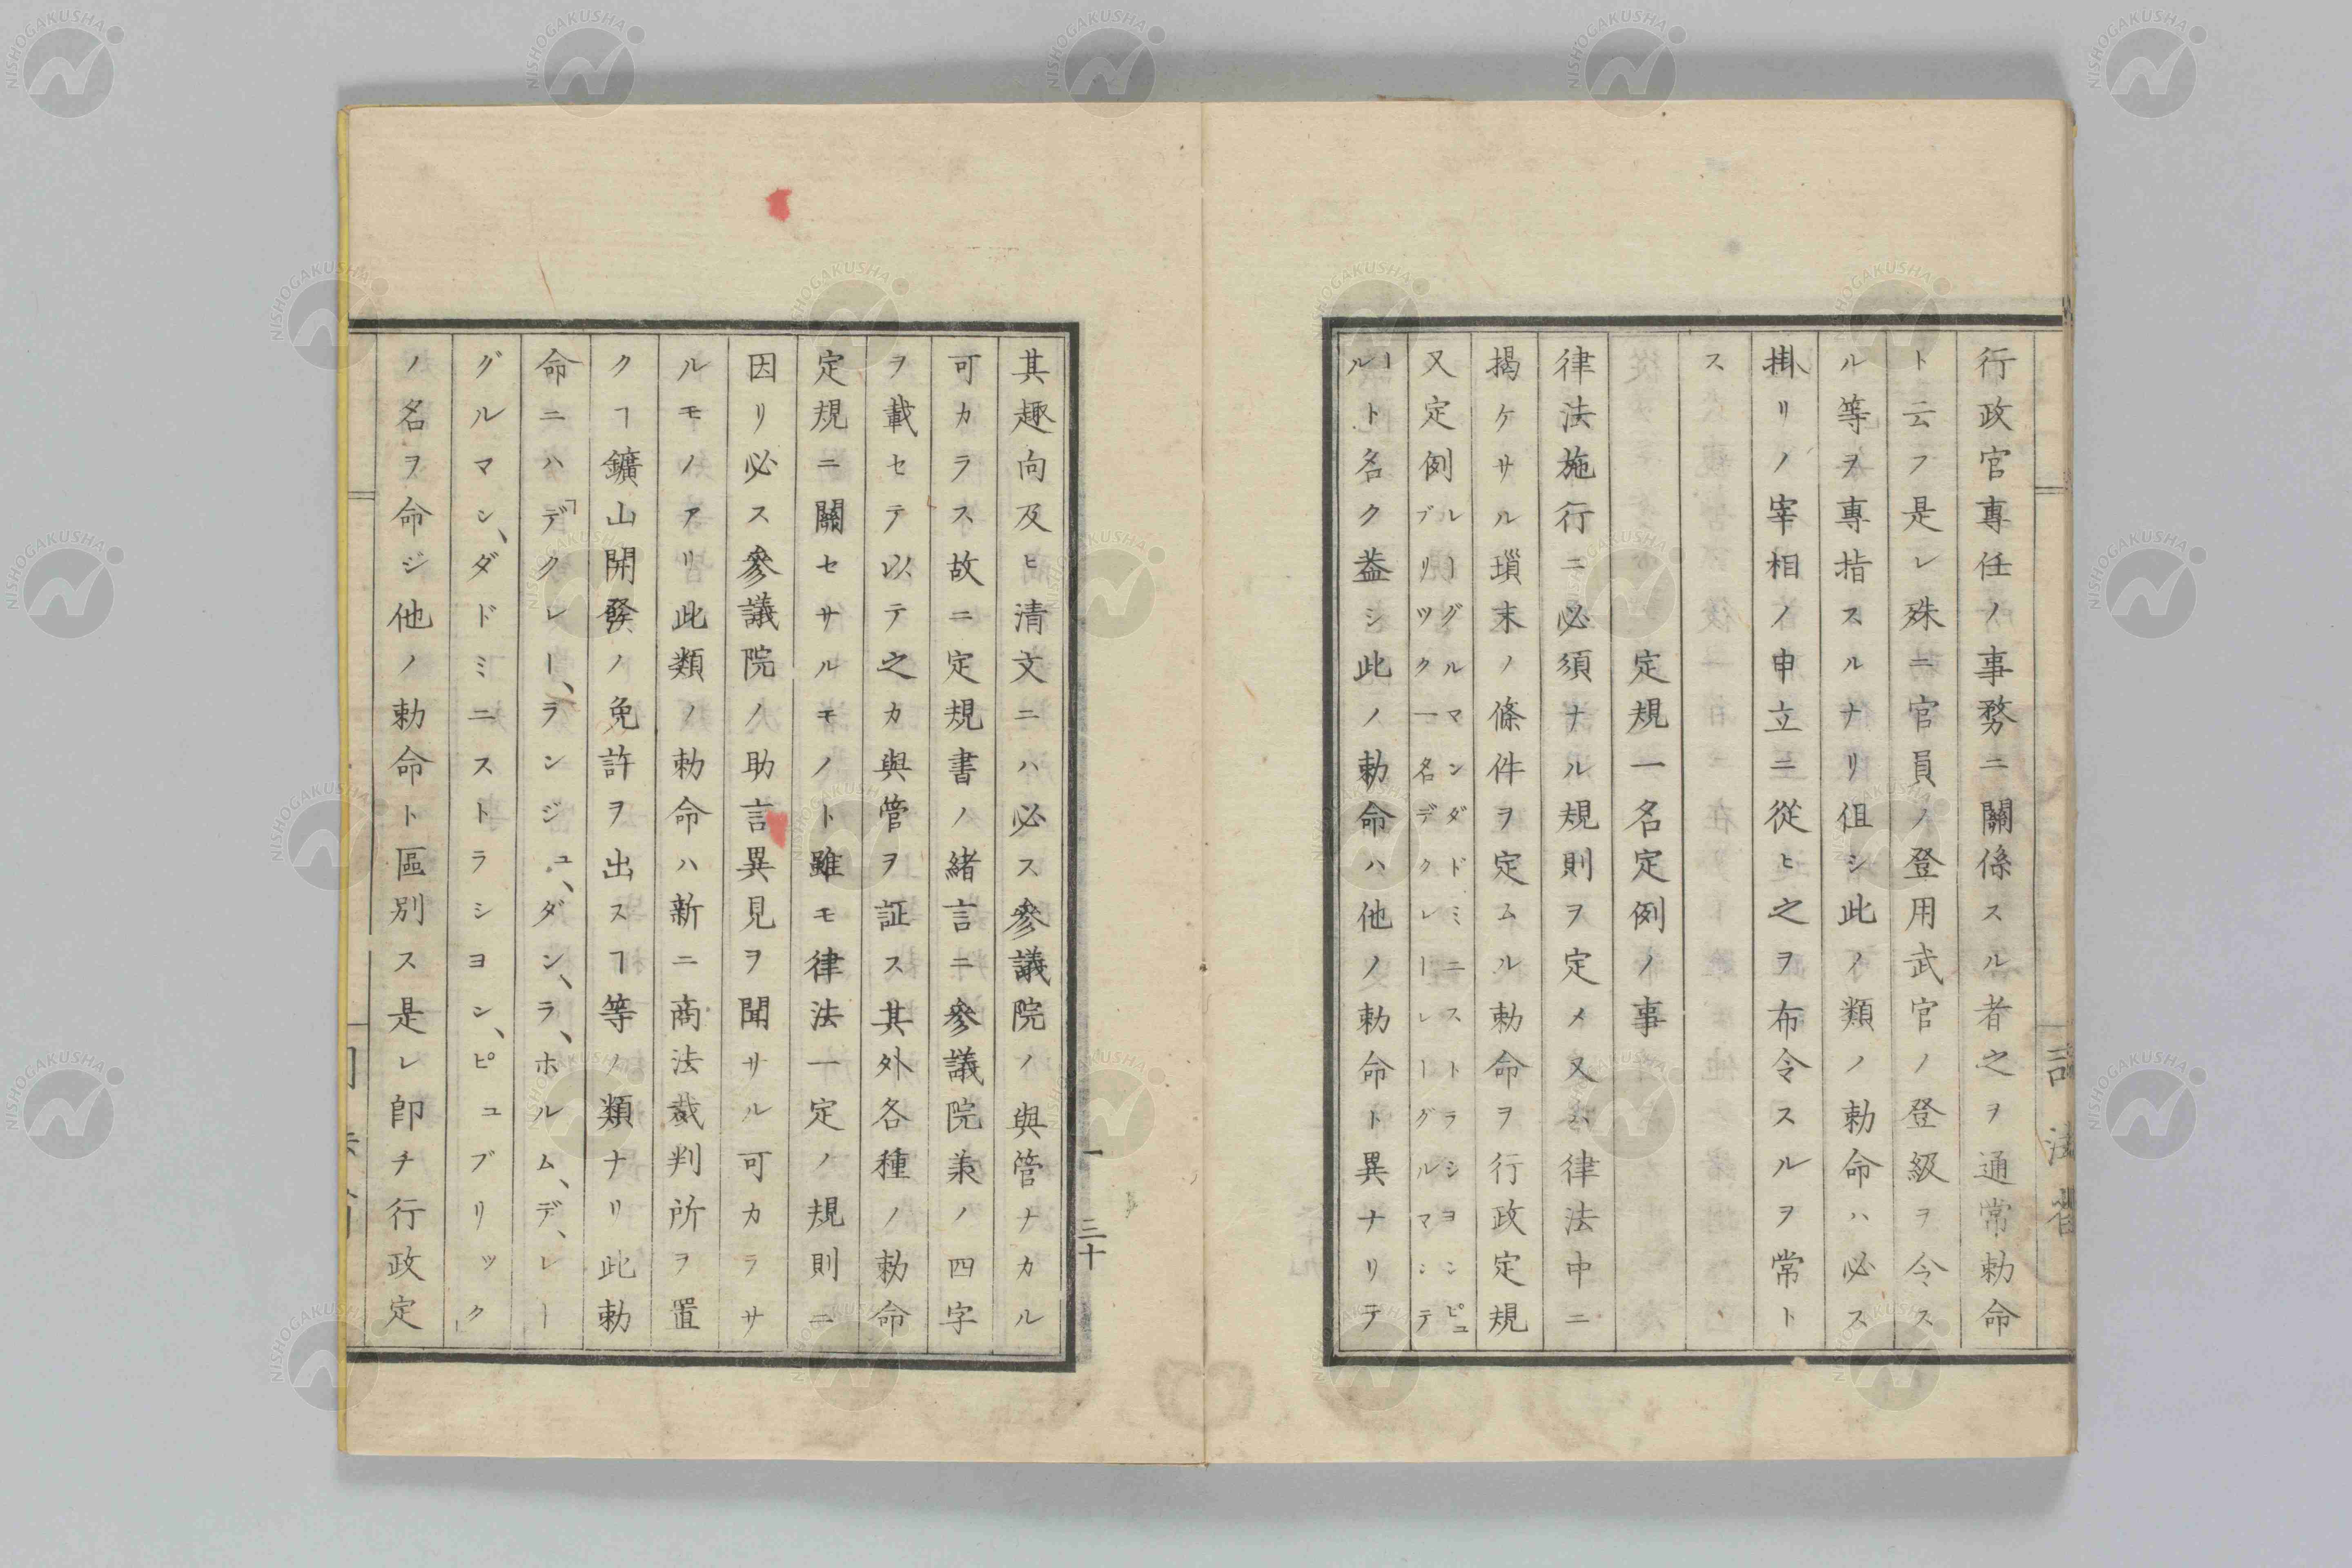 行政官專任ノ事務ニ關係スル者之ヲ通常勅命
ト云フ是レ殊ニ官員ノ登用武官ノ登級ヲ令ス
ル等ヲ專指スルナリ但シ此ノ類ノ勅命ハ必ス
掛リノ宰相ノ申立ニ從ヒ之ヲ布令スルヲ常ト
ス
定規一名定例ノ事
律法施行ニ必須ナル規則ヲ定メ又ハ律法中ニ
揭ケサル瑣末ノ條件ヲ定ムル勅命ヲ行政定規
又定例ルーグルマンダドミニストラシヨンピュ
ブリック一名デクレーレーグルマンテ
ールト名ク蓋シ此ノ勅命ハ他ノ勅命ト異ナリテ
三十
其趣向及ヒ清文ニハ必ス參議院ノ與管ナカル
可カラス故ニ定規書ノ緒言ニ參議院兼ノ四字
ヲ載セテ以テ之カ與管ヲ証ス其外各種ノ勅命
定規ニ關セサルモノト雖モ律法一定ノ規則ニ
因リ必ス參議院ノ助言異見ヲ聞サル可カラサ
ルモノアリ此類ノ勅命ハ新ニ商法裁判所ヲ置
クヿ鑛山開發ノ免許ヲ出スヿ等ノ類ナリ此勅
命ニハ「デクレー、ランジュ、ダン、ラ、ホルム、デ、レー
グルマン、ダドミニストラシヨン、ピュブリック」
ノ名ヲ命ジ他ノ勅命ト區別ス是レ卽チ行政定
NISHOGAKUSHA